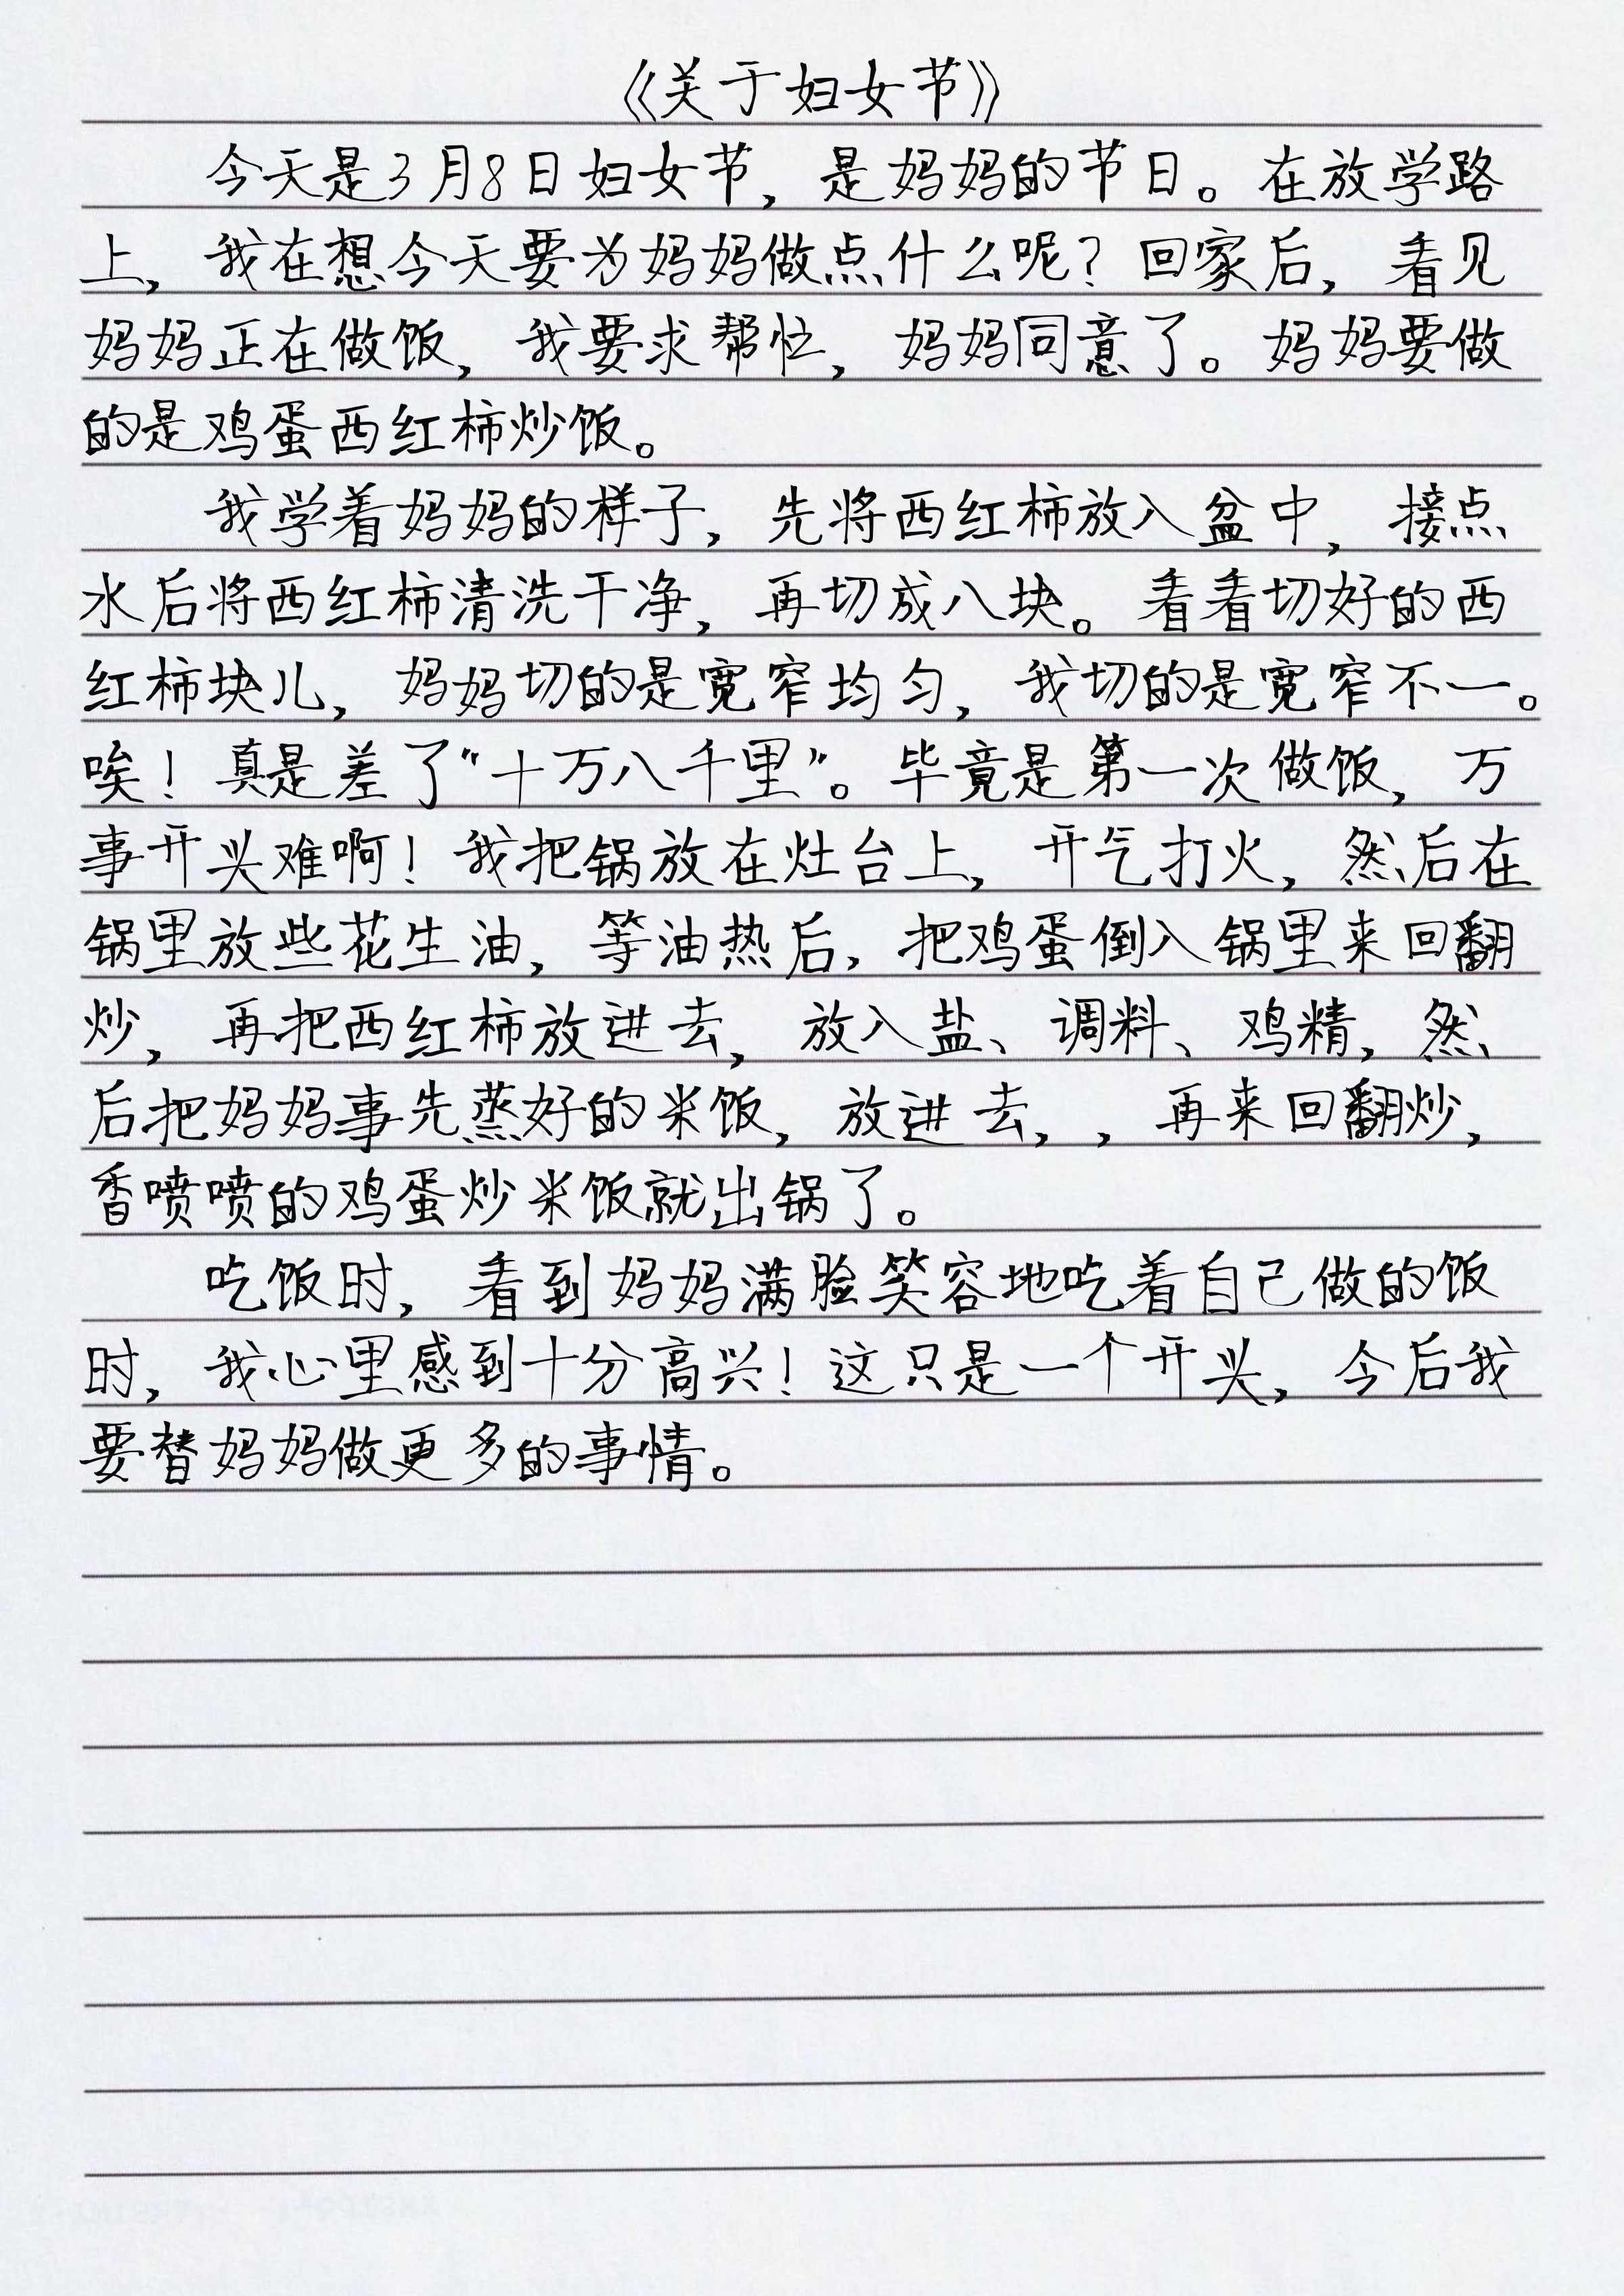 《关于妇女节》
今天是3月8日妇女节，是妈妈的节日。在放学路
上，我在想今天要为妈妈做点什么呢？回家后，看见
妈妈正在做饭，我要求帮忙，妈妈同意了。妈妈要做
的是鸡蛋西红柿炒饭。
我学着妈妈的样子，先将西红柿放入盆中，接点
水后将西红柿清洗干净，再切成八块。看看切好的西
红柿块儿，妈妈切的是宽窄均匀，我切的是宽窄不一。
唉！真是差了“十万八千里”。毕竟是第一次做饭，万
事开头难啊！我把锅放在灶台上，开气打火，然后在
锅里放些花生油，等油热后，把鸡蛋倒入锅里来回翻
炒，再把西红柿放进去，放入盐、调料、鸡精，然
后把妈妈事先蒸好的米饭，放进去，，再来回翻炒，
香喷喷的鸡蛋炒米饭就出锅了。
吃饭时，看到妈妈满脸笑容地吃着自己做的饭
时，我心里感到十分高兴！这只是一个开头，今后我
要替妈妈做更多的事情。